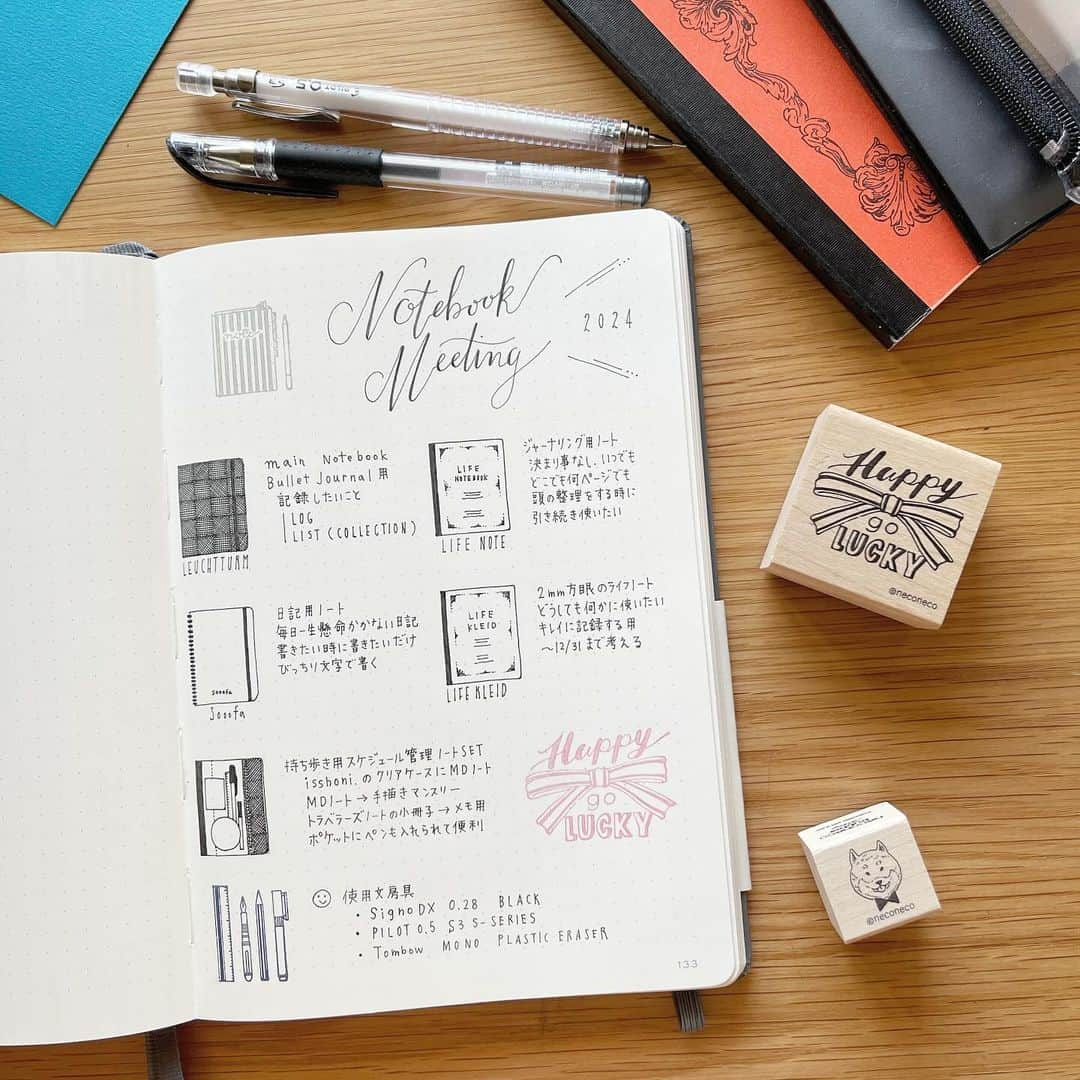 Pilot 0.5 S3
notes
Notebook
Meeting
2024
main Notebook
Bullet Journal用
記録したいこと
LOG
LIST (COLLECTION)
LEUCHTTURM
LIFE
NOTEBOOK
LIFE NOTE
ジャーナリング用ノート
決まり事なし、いつでも
どこでも何ページでも
頭の整理をする時に
引き続き使いたい
日記用ノート
毎日一生懸命かかない日記
書きたい時に書きたいだけ
びっちり文字で書く
sooofa
Sooofa
LIFE
KLEID
LIFE KLEID
2mm方眼のライフノート
どうしても何かに使いたい
キレイに記録する用
〜12/31まで考える
持ち歩き用スケジュール管理ノートSET
isshoni.のクリアケースにMDノート
MDノート→手描きマンスリー
トラベラーズノートの小冊子→メモ用
ポケットにペンも入れられて便利
Happy
go
LUCKY
使用文房具
• Signo DX 0.28 BLACK
• PILOT 0.5 S3 S-SERIES
• Tombow MONO PLASTIC ERASER
133
Happy
go
LUCKY
@neconeco
@neconeco